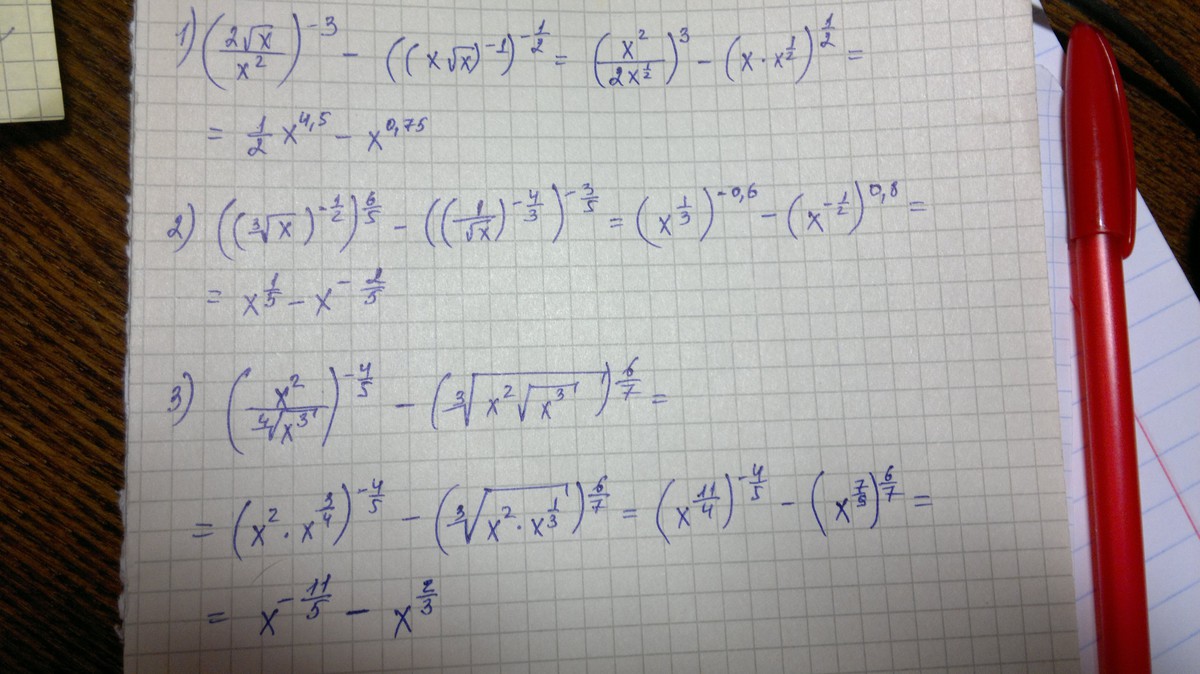 1) (2√x / x²)^(-3) - ((x√x)^(-1))^(-1/2) = (x² / 2x^(1/2))^3 - (x · x^(1/2))^(1/2) =
= 1/2 x^(4,5) - x^(0,75)
2) ((∛x)^(-1/2))^(6/5) - ((1/√x)^(-4/3))^(-3/5) = (x^(1/3))^(-0,6) - (x^(-1/2))^(0,8) =
= x^(1/5) - x^(-2/5)
3) (x² / ∜x³)^(-4/5) - (∛(x²√x³))^(6/7) =
= (x² · x^(3/4))^(-4/5) - (∛(x² · x^(1/3)))^(6/7) = (x^(11/4))^(-4/5) - (x^(7/9))^(6/7) =
= x^(-11/5) - x^(2/3)